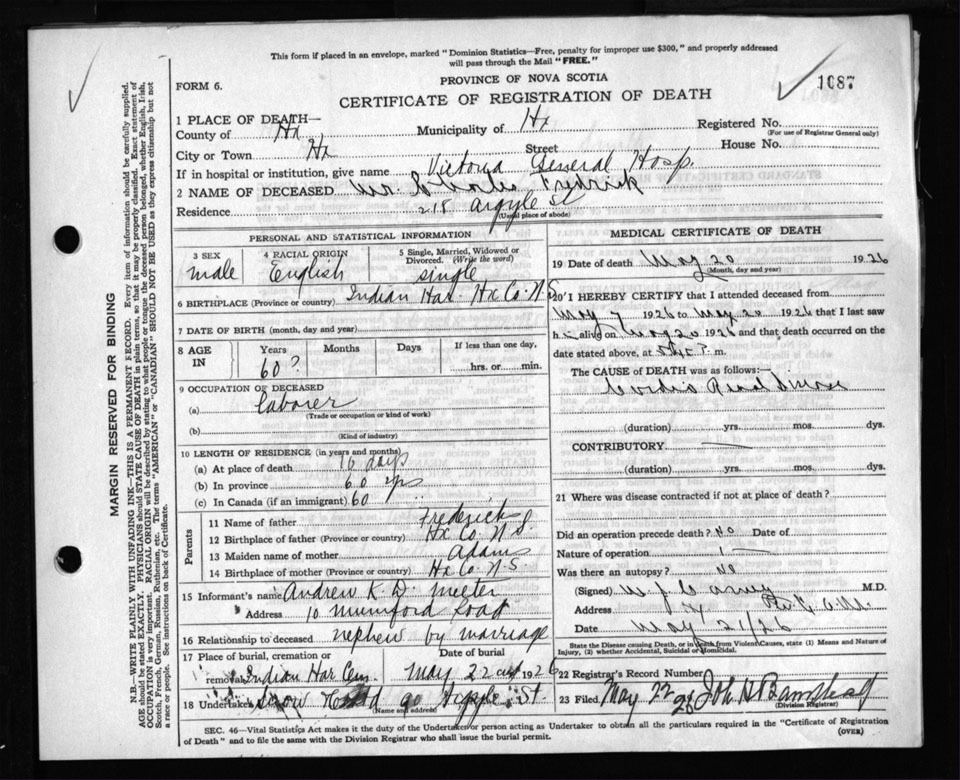 This form if placed in an envelope, marked "Dominion Statistics—Free, penalty for improper use $300," and properly addressed
will pass through the Mail "FREE."
PROVINCE OF NOVA SCOTIA
1087
FORM 6.
CERTIFICATE OF REGISTRATION OF DEATH
1 PLACE OF DEATH—
County of Hx Municipality of Hx Registered No.
(For use of Registrar General only)
City or Town Hx Street House No.
If in hospital or institution, give name Victoria General Hosp.
2 NAME OF DECEASED Mr. Charles Fredrick
Residence 218 Argyle St
(Usual place of abode)
PERSONAL AND STATISTICAL INFORMATION
3 SEX male
4 RACIAL ORIGIN English
5 Single, Married, Widowed or Divorced. (Write the word) single
6 BIRTHPLACE (Province or country) Indian Har. Hx Co. N.S.
7 DATE OF BIRTH (month, day and year)
8 AGE IN Years Months Days If less than one day, hrs. or min.
60?
9 OCCUPATION OF DECEASED
(a) laborer
(Trade or occupation or kind of work)
(b)
(Kind of industry)
10 LENGTH OF RESIDENCE (in years and months)
(a) At place of death 16 days
(b) In province 60 yrs
(c) In Canada (if an immigrant) 60
Parents
11 Name of father Frederick
12 Birthplace of father (Province or country) Hx Co. N.S.
13 Maiden name of mother Adams
14 Birthplace of mother (Province or Country) Hx Co. N.S.
15 Informant's name Andrew K. D.
Address 10 Mumford Road
16 Relationship to deceased nephew by marriage
17 Place of burial, cremation or removal Date of burial
Indian Har Cem May 22 1926
18 Undertaker Snow 90 Argyle St.
(Name and address)
MEDICAL CERTIFICATE OF DEATH
19 Date of death May 20 1926
(Month, day and year)
20 I HEREBY CERTIFY that I attended deceased from
May 7 1926 to May 20 1926 that I last saw
h alive on May 20 1926 and that death occurred on
date stated above, at P. m.
The CAUSE of DEATH was as follows:—
(duration) yrs. mos. dys.
CONTRIBUTORY
(duration) yrs. mos. dys.
21 Where was disease contracted if not at place of death?
Did an operation precede death? No Date of
Nature of operation
Was there an autopsy? No
(Signed) M.D.
Address
Date May 21/26
State the Disease causing Death, or in death from Violent Causes, state (1) Means and Nature of
Injury, (2) whether Accidental, Suicidal or Homicidal.
22 Registrar's Record Number
23 Filed May 22 26
(Division Registrar)
SEC. 46—Vital Statistics Act makes it the duty of the Undertaker or person acting as Undertaker to obtain all the particulars required in the "Certificate of Registration
of Death" and to file the same with the Division Registrar who shall issue the burial permit.
(OVER)
MARGIN RESERVED FOR BINDING
N.B.—WRITE PLAINLY WITH UNFADING INK—THIS IS A PERMANENT RECORD. Every item of information should be carefully supplied.
AGE should be stated EXACTLY. PHYSICIANS should STATE CAUSE OF DEATH in plain terms, so that it may be properly classified. Exact statement of
OCCUPATION is very important. RACIAL ORIGIN will be described by stating to what people or tongue the deceased person belonged, whether English, Irish,
Scotch, French, German, Russian, Ruthenian, etc. The terms "AMERICAN" or "CANADIAN" SHOULD NOT BE USED as they express citizenship but not
a race or people. See instructions on back of Certificate.